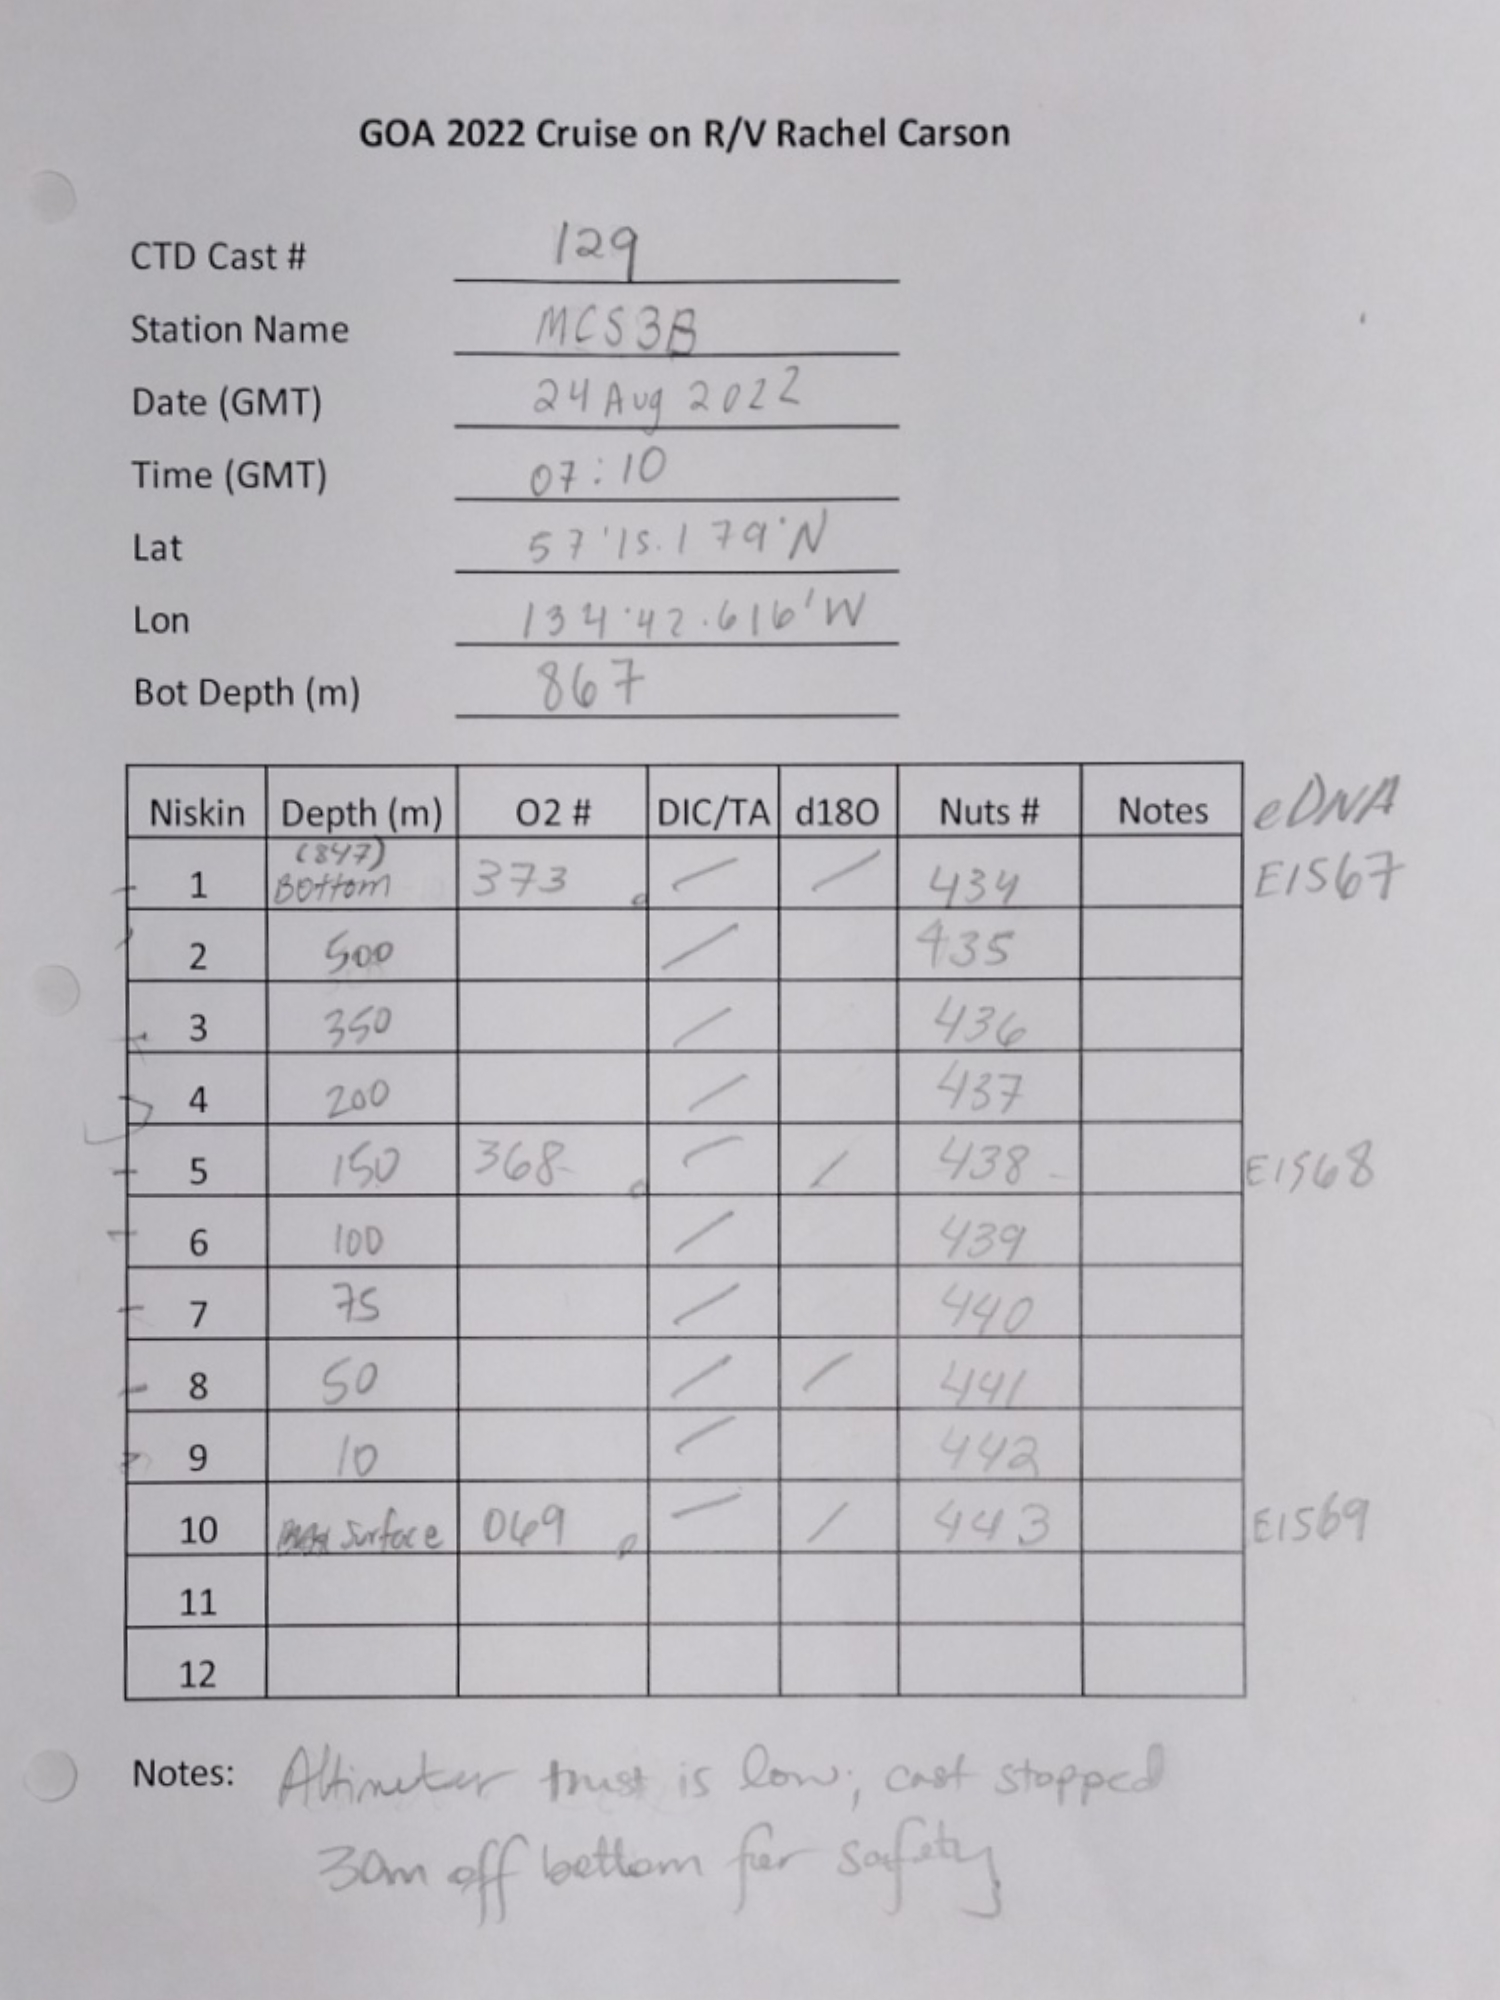 GOA 2022 Cruise on R/V Rachel Carson
CTD Cast # 129
Station Name MCS3B
Date (GMT) 24 Aug 2022
Time (GMT) 07:10
Lat 57°15.179'N
Lon 134°42.616'W
Bot Depth (m) 867
Niskin Depth (m) O2 # DIC/TA d18O Nuts # Notes eDNA
1 (847) Bottom 373 / / 434 E1567
2 500 / 435
3 350 / 436
4 200 / 437
5 150 368 / / 438 E1568
6 100 / 439
7 75 / 440
8 50 / / 441
9 10 / 442
10 Surface 069 / / 443 E1569
11
12
Notes: Altimeter trust is low; cast stopped
30m off bottom for safety